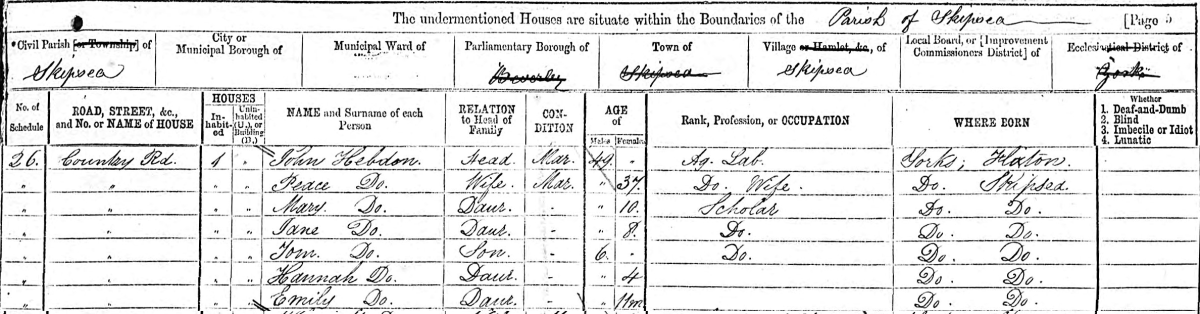 The undermentioned Houses are situate within the Boundaries of the Parish of Skipsea [Page 5
Civil Parish [or Township] of
Skipsea
City or Municipal Borough of
Municipal Ward of
Parliamentary Borough of
Beverley
Town of
Skipsea
Village or Hamlet, &c., of
Skipsea
Local Board, or [Improvement Commissioners District] of
Ecclesiastical District of
York
No. of Schedule
ROAD, STREET, &c., and No. or NAME of HOUSE
HOUSES
Inhabited
Uninhabited (U.), or Building (B.)
NAME and Surname of each Person
RELATION to Head of Family
CONDITION
AGE of
Males
Females
Rank, Profession, or OCCUPATION
WHERE BORN
Whether
1. Deaf-and-Dumb
2. Blind
3. Imbecile or Idiot
4. Lunatic
26 Country Rd. 1 " John Hebdon. Head Mar. 49 " Ag. Lab. Yorks;
" " Peace Do. Wife. Mar. " 37 Do. Wife. Do. Skipsea.
" " Mary. Do. Daur. - " 10. Scholar Do. Do.
" " Jane Do. Daur. - " 8. Do. Do. Do.
" " Tom. Do. Son. - 6. " Do. Do. Do.
" " Hannah Do. Daur. - " 4 Do. Do.
" " Emily Do. Daur. - " 11m. Do. Do.